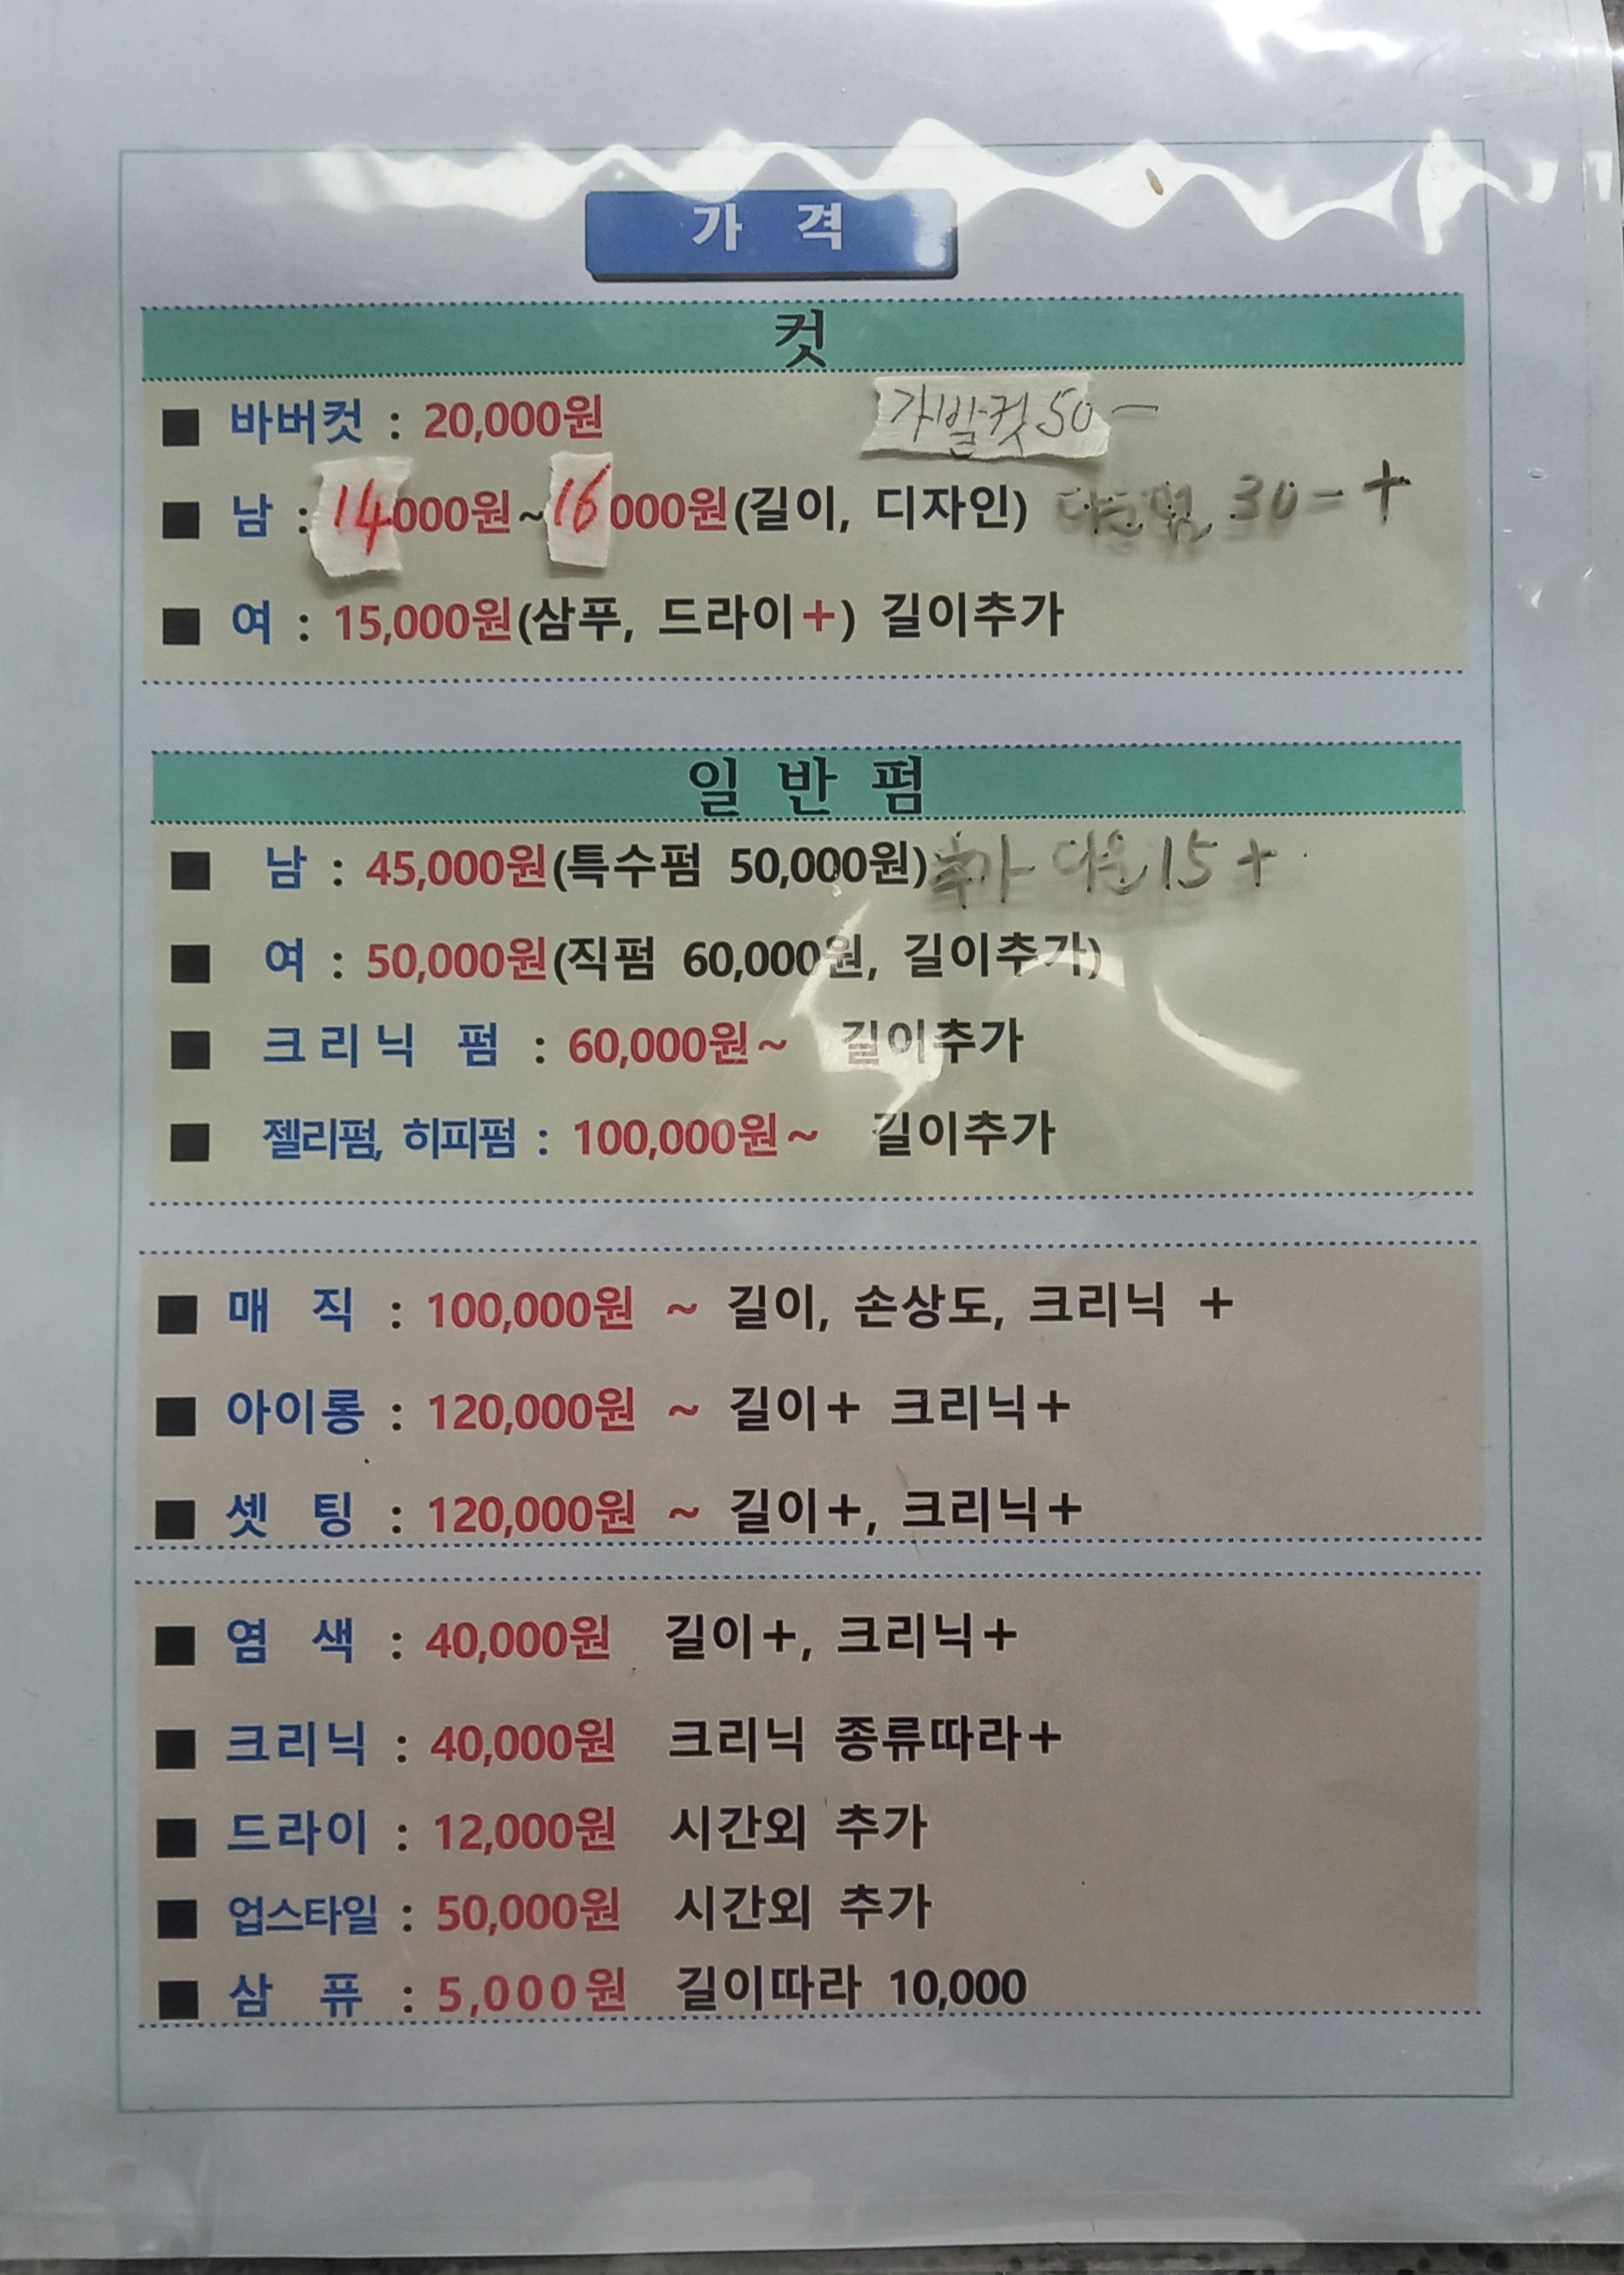 가 격
컷
■ 바버컷 : 20,000원 가발컷 50 —
■ 남 : 14000원~16000원(길이, 디자인) 다운펌 30 - +
■ 여 : 15,000원(삼푸, 드라이+) 길이추가
일 반 펌
■ 남 : 45,000원(특수펌 50,000원) 추가 다운 15 +
■ 여 : 50,000원(직펌 60,000원, 길이추가)
■ 크리닉 펌 : 60,000원~ 길이추가
■ 젤리펌, 히피펌 : 100,000원~ 길이추가
■ 매 직 : 100,000원 ~ 길이, 손상도, 크리닉 +
■ 아이롱 : 120,000원 ~ 길이+ 크리닉+
■ 셋 팅 : 120,000원 ~ 길이+, 크리닉+
■ 염 색 : 40,000원 길이+, 크리닉+
■ 크리닉 : 40,000원 크리닉 종류따라+
■ 드라이 : 12,000원 시간외 추가
■ 업스타일 : 50,000원 시간외 추가
■ 삼 퓨 : 5,000원 길이따라 10,000